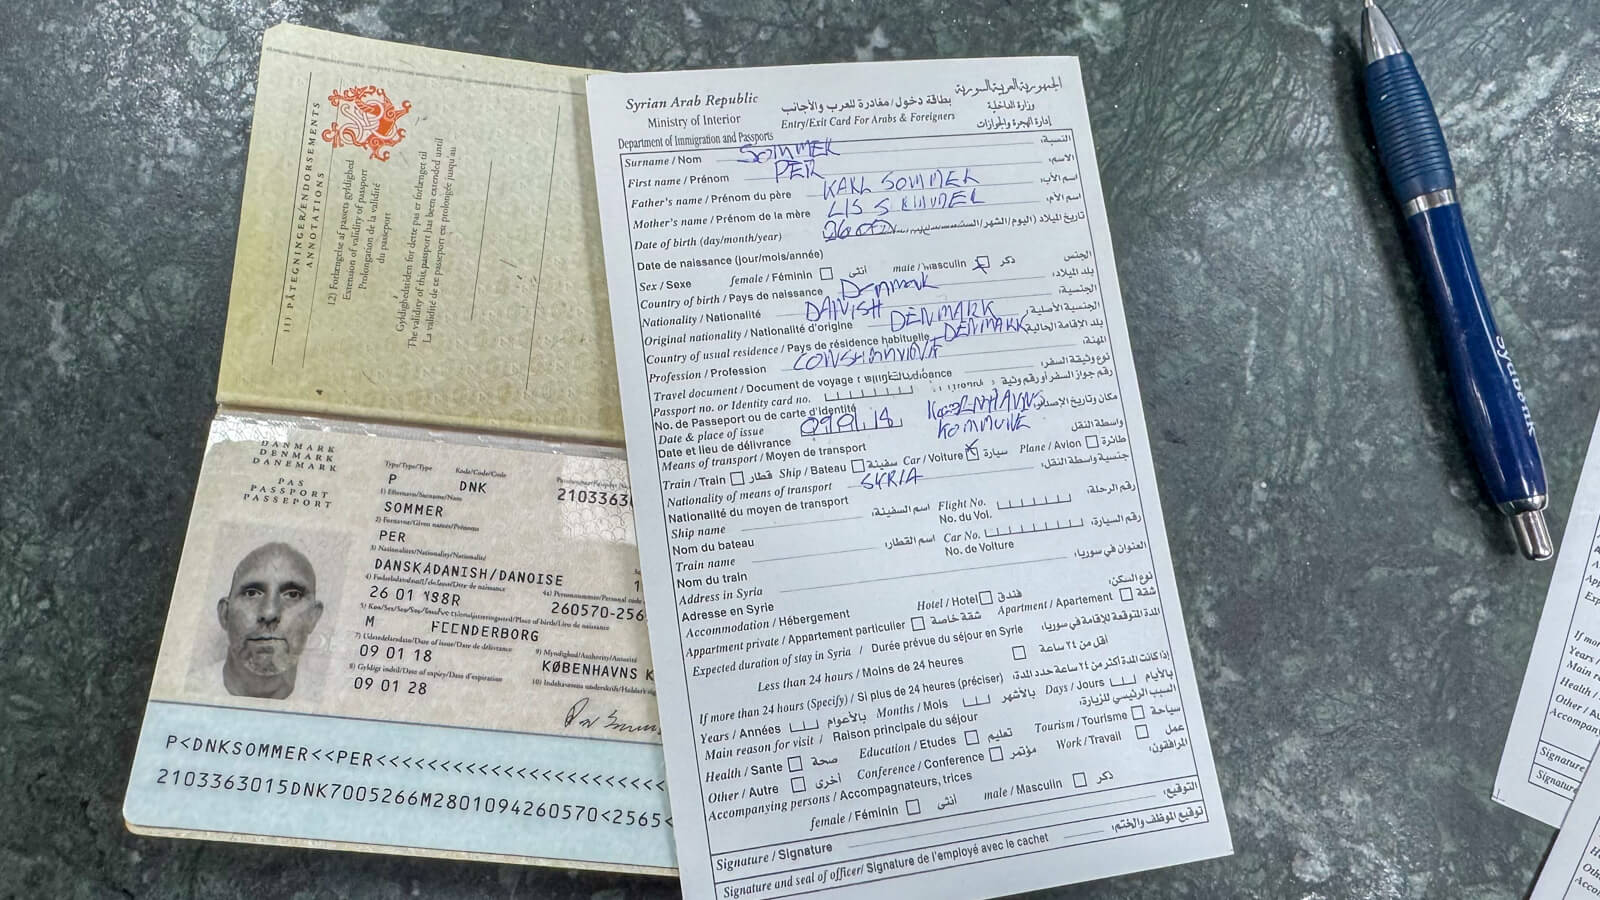 11) PÅTEGNINGER/ENDORSEMENTS
ANNOTATIONS
12) Forlængelse af passets gyldighed
Extension of validity of passport
Prolongation de la validité
du passeport
Gyldighedstiden for dette pas er forlænget til
The validity of this passport has been extended until
La validité de ce passeport est prolongée jusqu'au
DANMARK
DENMARK
DANEMARK
PAS
PASSPORT
PASSEPORT
Type/Type/Type Kode/Code/Code
P DNK 21033630
1) Efternavn/Surname/Nom
SOMMER
2) Fornavne/Given names/Prénoms
PER
3) Nationalitet/Nationality/Nationalité
DANSK/DANISH/DANOISE
26 01
260570-256
M
7) Udstedelsesdato/Date of issue/Date de délivrance
09 01 18
9) Myndighed/Authority/Autorité
KØBENHAVNS K
8) Gyldigt indtil/Date of expiry/Date d'expiration
09 01 28
P<DNKSOMMER<<PER<<<<<<<<<<<<<<<<<<<<<<<
2103363015DNK7005266M2801094260570<2565<
Syrian Arab Republic الجمهورية العربية السورية
Ministry of Interior بطاقة دخول/مغادرة للعرب والأجانب وزارة الداخلية
Department of Immigration and Passports Entry/Exit Card For Arabs & Foreigners إدارة الهجرة والجوازات
Surname / Nom SOMMER النسبة:
First name / Prénom PER الاسم:
Father's name / Prénom du père KARL SOMMER اسم الأب:
Mother's name / Prénom de la mère LIS اسم الأم:
Date of birth (day/month/year) تاريخ الميلاد (اليوم/الشهر/السنة)
Date de naissance (jour/mois/année)
Sex / Sexe female / Féminin أنثى male / Masculin ذكر الجنس
Country of birth / Pays de naissance Denmark بلد الميلاد:
Nationality / Nationalité DANISH الجنسية:
Original nationality / Nationalité d'origine DENMARK الجنسية الأصلية:
Country of usual residence / Pays de résidence habituelle DENMARK بلد الإقامة الحالية:
Profession / Profession المهنة:
Travel document / Document de voyage نوع وثيقة السفر:
Passport no. or Identity card no. رقم جواز السفر أو رقم وثيقة
No. de Passeport ou de carte d'identité
Date & place of issue KOBENHAVNS KOMMUNE مكان وتاريخ الإصدار
Date et lieu de délivrance
Means of transport / Moyen de transport واسطة النقل
Train / Train قطار Ship / Bateau سفينة Car / Voiture سيارة Plane / Avion طائرة
Nationality of means of transport SYRIA جنسية واسطة النقل:
Nationalité du moyen de transport
Ship name اسم السفينة: Flight No. رقم الرحلة:
Nom du bateau No. du Vol.
Train name اسم القطار: Car No. رقم السيارة:
Nom du train No. de Voiture
Address in Syria العنوان في سوريا:
Adresse en Syrie
Accommodation / Hébergement Hotel / Hotel فندق Apartment / Apartement شقة نوع السكن:
Apartment private / Appartement particulier شقة خاصة
Expected duration of stay in Syria / Durée prévue du séjour en Syrie المدة المتوقعة للإقامة في سوريا:
Less than 24 hours / Moins de 24 heures أقل من ٢٤ ساعة
If more than 24 hours (Specify) / Si plus de 24 heures (préciser) إذا كانت المدة أكثر من ٢٤ ساعة حدد المدة:
Years / Années بالأعوام Months / Mois بالأشهر Days / Jours بالأيام
Main reason for visit / Raison principale du séjour السبب الرئيسي للزيارة:
Education / Etudes تعليم Tourism / Tourisme سياحة
Health / Sante صحة Conference / Conférence مؤتمر Work / Travail عمل
Other / Autre أخرى
Accompanying persons / Accompagnateurs, trices المرافقون:
female / Féminin أنثى male / Masculin ذكر
Signature / Signature التوقيع:
Signature and seal of officer/ Signature de l'employé avec le cachet توقيع الموظف والختم:
If more
Years /
Main re
Health /
Other / Au
Accompany
Signature
Signature